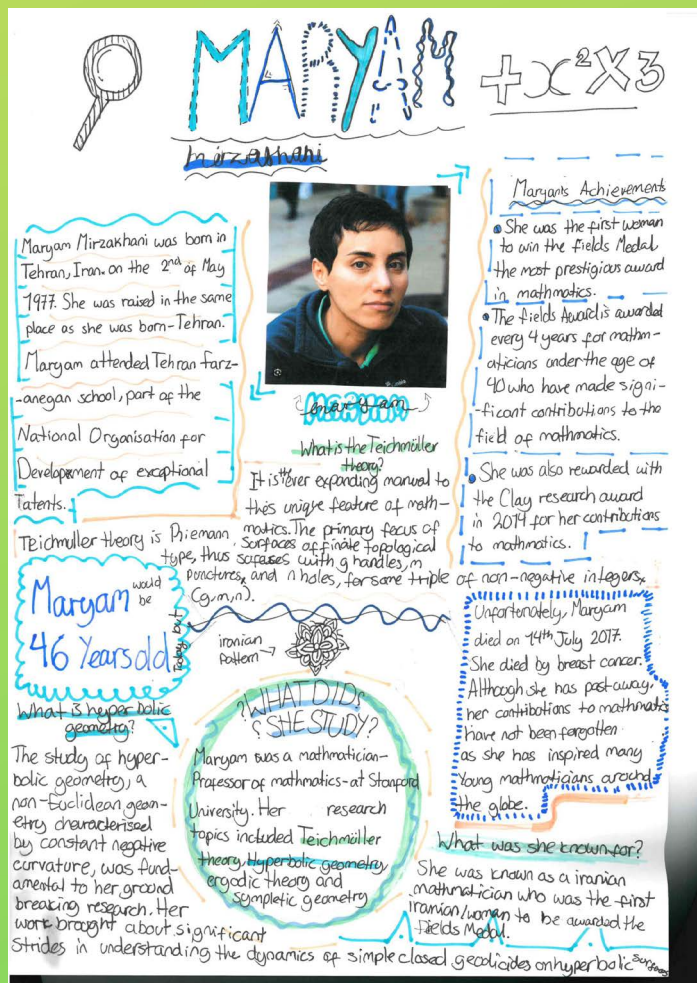 MARYAM
+x²x3
mirzakhani
Maryam Mirzakhani was born in
Tehran, Iran. on the 2nd of May
1977. She was raised in the same
place as she was born-Tehran.
Maryam attended Tehran farz-
-anegan school, part of the
National Organisation for
Development of exceptional
Talents.
maryam
What is the Teichmüller
theory?
It is the ever expanding manual to
this unique feature of math-
matics. The primary focus of
Teichmuller theory is Rhiemann
surfaces of finate topological
type, thus surfases with g handles, m
punctures, and n holes, for some triple of non-negative integers,
(g,m,n).
Maryam's Achievements
She was the first woman
to win the fields Medal
the most prestigious award
in mathmatics.
The fields Award is awarded
every 4 years for mathm-
aticians under the age of
40 who have made signi-
-ficant contributions to the
field of mathmatics.
She was also rewarded with
the Clay research award
in 2014 for her contributions
to mathmatics.
Maryam would
be
46 Years old
today but
iranian
pattern →
Unfortunately, Maryam
died on 14th July 2017.
She died by breast cancer.
Although she has past away,
her contributions to mathmatics
have not been forgotten
as she has inspired many
Young mathmaticians around
the globe.
What is hyperbolic
geometry?
The study of hyper-
bolic geometry, a
non-Euclidean geom-
etry characterised
by constant negative
curvature, was fund-
amental to her ground
breaking research. Her
work brought about significant
strides in understanding the dynamics of simple closed geodicides on hyperbolic surfaces
?WHAT DID?
?SHE STUDY?
Maryam was a mathmatician-
Professor of mathmatics-at Stanford
University. Her research
topics included Teichmöller
theory, Hyperbolic geometry,
ergodic theory and
sympletic geometry
What was she known for?
She was known as a iranian
mathmatician who was the first
Iranian/woman to be awarded the
Fields Medal.